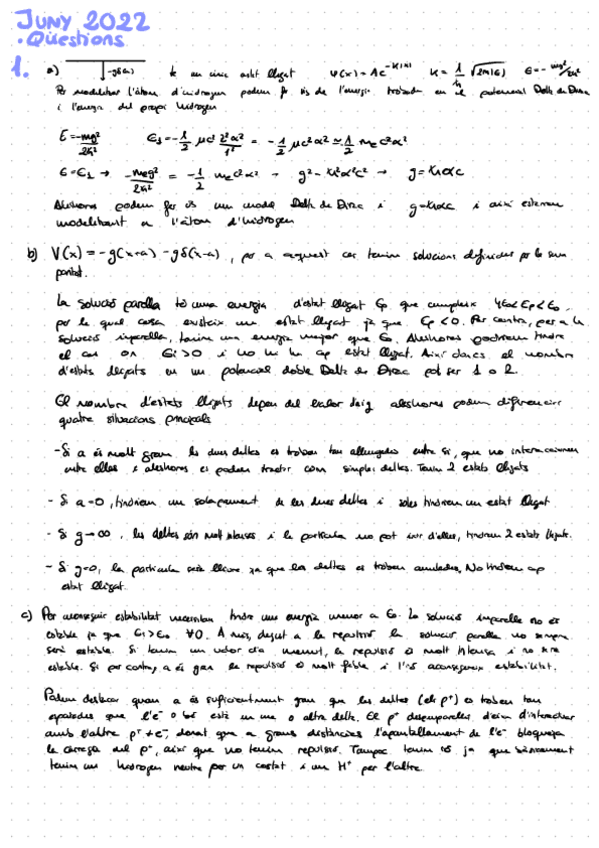 JUNY 2022
· Qüestions
1. a) -gδ(x) té un únic estat lligat ψ(x) = Ae^{-K|x|} K = 1/ħ √2m|E| E = -mg²/2ħ²
Per modelitzar l'àtom d'hidrogen podem fer ús de l'energia trobada en el potencial Delta de Dirac
i l'energia del propi hidrogen
E = -mg²/2ħ² E₁ = -1/2 μc² Z²α²/1² = -1/2 μc²α² ≃ -1/2 mₑc²α²
E = E₁ → -mₑg²/2ħ² = -1/2 mₑc²α² → g² = ħ²α²c² → g = ħαc
Aleshores podem fer ús un model Delta de Dirac i g = ħαc i així estarem
modelitzant a l'àtom d'hidrogen
b) V(x) = -g(x+a) - gδ(x-a), per a aquest cas tenim solucions definides per la seva
paritat.
La solució parella té una energia d'estat lligat Ep que compleix 4E₀<Ep<E₀
per la qual cosa existeix un estat lligat ja que Ep<0. Per contra, per a la
solució imparella, tenim una energia major que E₀. Aleshores podríem tindre
el cas on Ei>0 i no hi ha cap estat lligat. Així doncs, el nombre
d'estats lligats en un potencial doble Delta de Dirac pot ser 1 o 2.
El nombre d'estats lligats depen del valor aleshores podem diferenciar
quatre situacions principals
- Si a és molt gran les dues deltes es troben tan allunyades entre si, que no interaccionen
entre elles i aleshores es poden tractar com simples deltes. Tenim 2 estats lligats
- Si a=0, tindríem un solapament de les dues deltes i soles tindríem un estat lligat
- Si g→∞, les deltes són molt intenses i la partícula no pot eixir d'elles, tindrem 2 estats lligats.
- Si g=0, la partícula serà lliure ja que les deltes es troben anulades, No tindrem cap
estat lligat.
c) Per aconseguir estabilitat necessitem tindre una energia menor a E₀. La solució imparella no és
estable ja que Ei>E₀ ∀0. A més, degut a la repulsió la solució parella no sempre
serà estable. Si tenim un valor d'a menut, la repulsió és molt intensa i no serà
estable. Si per contra, a és gran la repulsió és molt feble i sí aconseguix estabilitat.
Podem destacar quan a és suficientment gran que les deltes (els p⁺) es troben tan
apartades que l'e⁻ o bé està en una o altra delta. El p⁺ desemparellat, deixa d'interactuar
amb l'altre p⁺+e⁻, donat que a grans distàncies l'apantallament de l'e⁻ bloqueja
la càrrega del p⁺, així que no tenim repulsió. Tampoc tenim ió ja que bàsicament
tenim un hidrogen neutre per un costat i un H⁺ per l'altre.